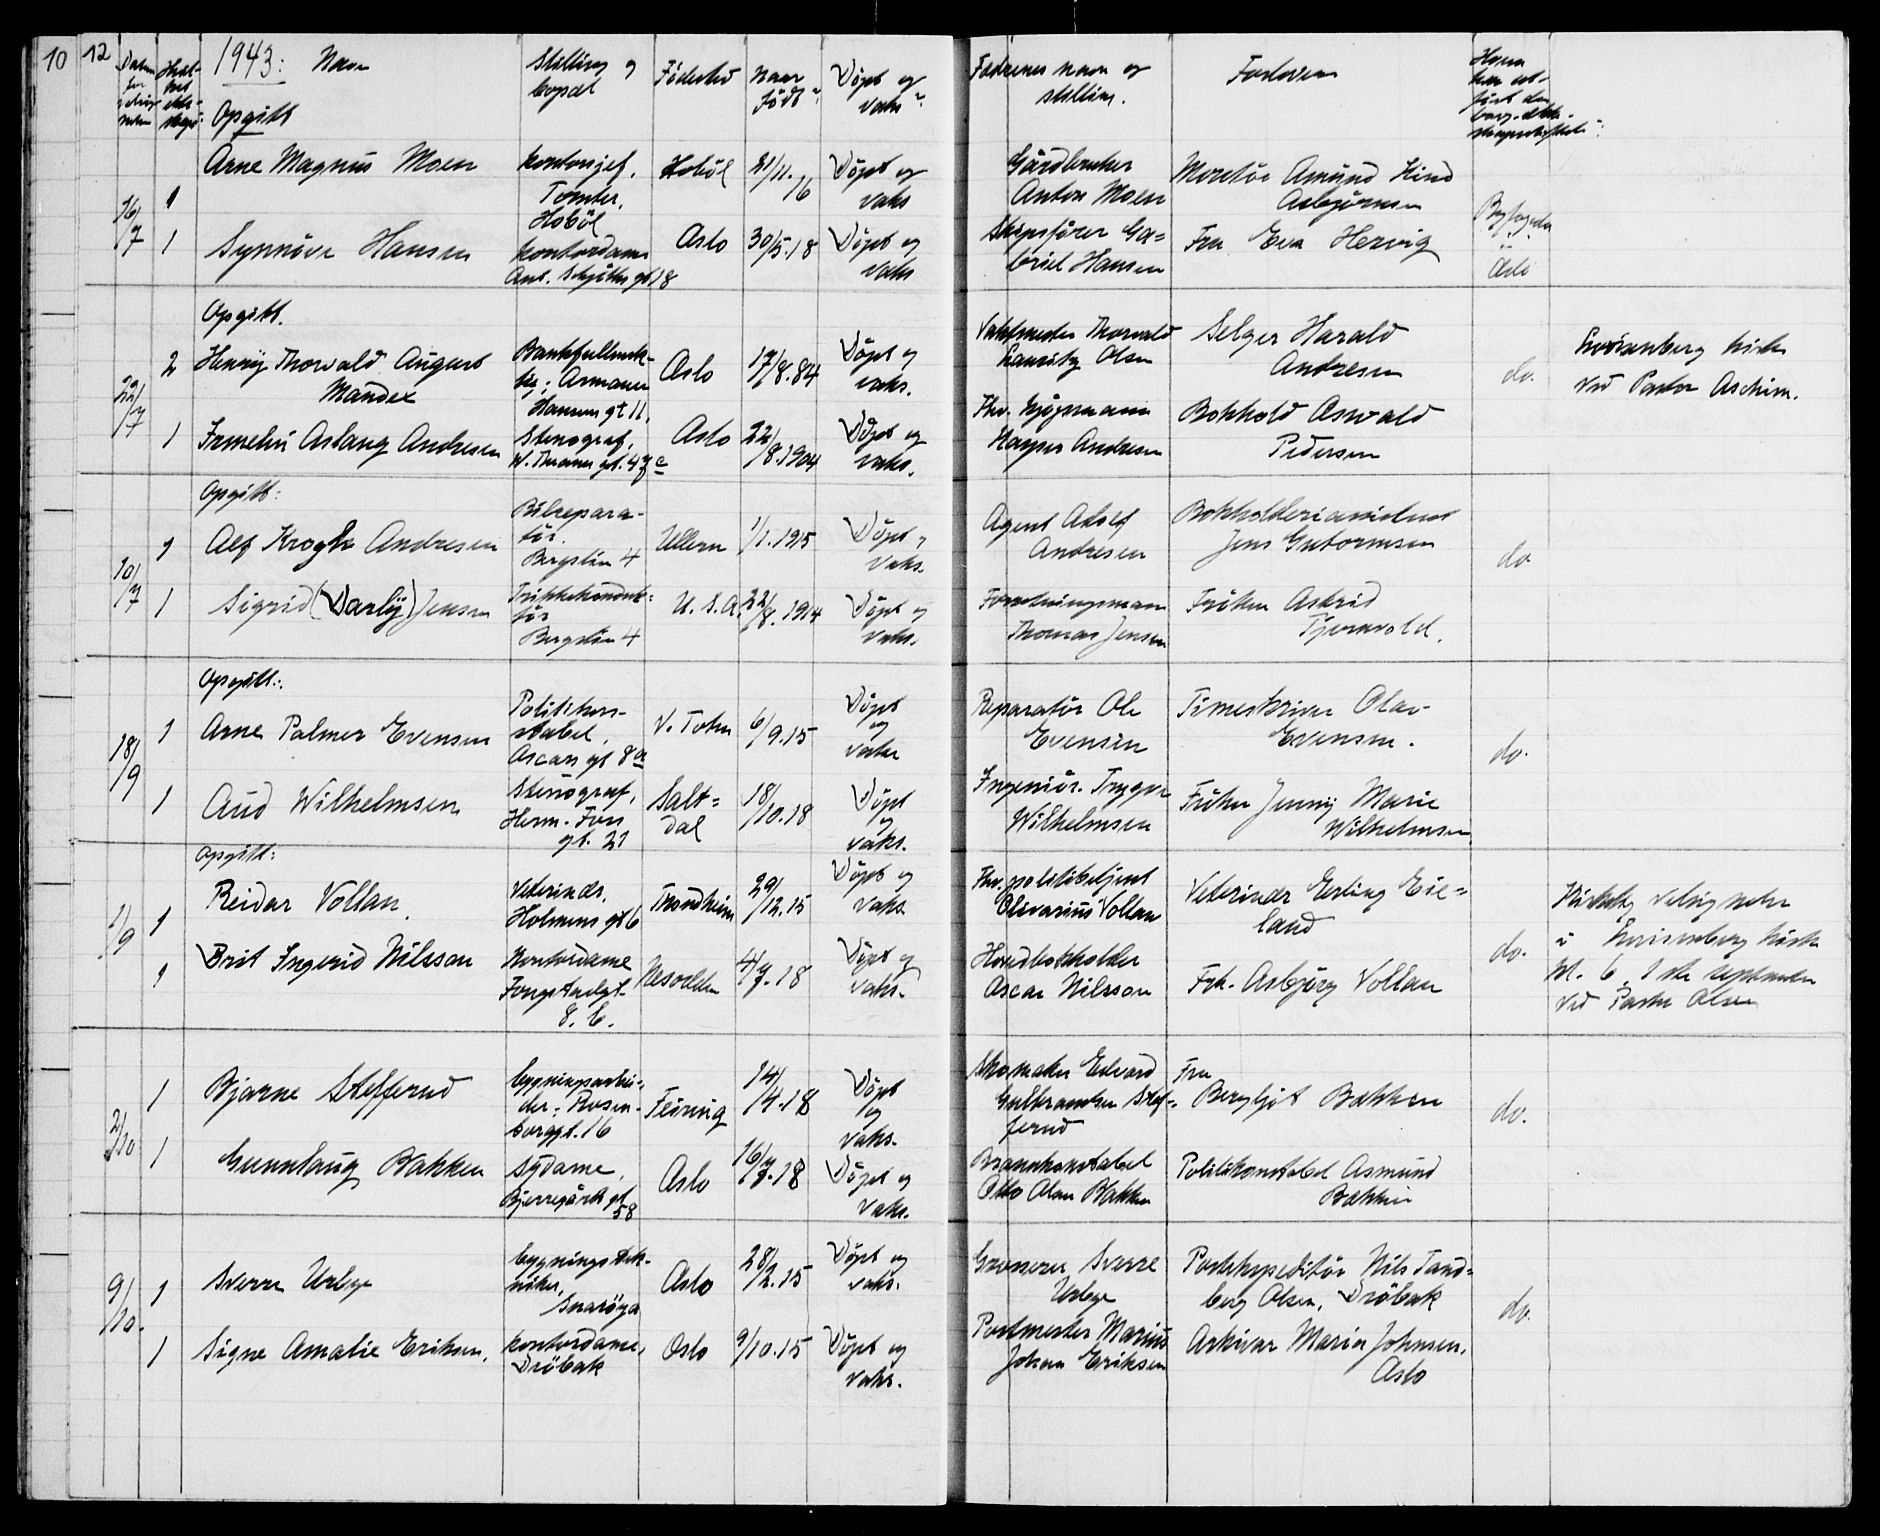 10 12
1943: Navn
Stilling og bopæl
Fødested
Naar født?
Döpt og vaks?
Fædrenes navn og stilling.
Forlovere
Opgitt
16/7
1 Arne Magnus Moen
kontorsjef, Tomter, Hobøl
Hobøl
21/11.16
Döpt og vaks
Gårdbruker Anton Moen
Montör Amund Hind Asbjörnsen
Byfogden i Oslo
1 Synnöve Hansen
kontordame Ant. Schjöths gt 18
Oslo
30/5.18
Döpt og vaks
Skipsförer Gabriel Hansen
Fru Eva Hervig
Opgitt.
22/7
2 Henry Thorvald August Mandex
Bankfullmektig; Armauer Hansens gt 11.
Oslo
17/8.84
Döpt og vaks.
Vaktmester Thorvald Lauritz Olsen
Selger Harald Andresen
do.
Lovisenberg kirke ved Pastor Aschim.
1 Aslaug Andresen
Stenograf, W. Thranes gt. 47 c
Oslo
22/8.1904
Döpt og vaks.
Andresen
Bokhold Oswald Pedersen
Opgitt:
10/7
1 Alf Krogh Andresen
Bilreparatör. Bergslien 4
Ullern
1/1.1915
Döpt og vaks.
Agent Adolf Andresen
Bokholderiassistent Jens Guttormsen
do.
1 Sigrid (Darly) Jensen
Trikkekonduktör Bergslien 4
U.S.A.
22/8.1914
Döpt og vaks.
Forretningsmann Thomas Jensen
Fröken Astrid Tjernvold.
Opgitt:
18/9
1 Arne Palmer Evensen
Politikonstabel, Oscars gt 8 a
V. Toten
6/9.15
Döpt og vaks
Reparatör Ole Evensen
Timeskriver Olav Evensen.
do.
1 Aud Wilhelmsen
Stenograf, Herm. Foss gt. 21
Saltdal
18/10.18
Döpt og vaks.
Ingeniör Trygve Wilhelmsen
Fröken Jenny Marie Wilhelmsen
Opgitt:
1/9
1 Reidar Vollan
Veterinær, Holmens gt 6
Trondheim
29/12.15
Döpt og vaks.
Fhv. politibetjent Olivarius Vollan
Veterinær Erling Eieland
do.
Kirkelig velsignelse i Lovisenberg kirke kl. 6 1ste september ved Pastor Olsen
1 Brit Ingerid Nilsson
Kontordame
Nesodden
4/7.18
Döpt og vaks.
Hovedbokholder Oscar Nilsson
Frk. Asbjörg Vollan
2/10
1 Bjarne Stefferud
bygningsarbeider; Rosenborggt. 16
Feiring
14/4.18
Döpt og vaks.
Skomaker Edvard Gulbrandsen Stefferud
Fru Bergljot Bakken
do.
1 Gunnlaug Bakken
sydame, Bjerregårds gt 58
Oslo
16/7.18
Döpt og vaks.
Brannkonstabel Otto Olsen Bakken
Politikonstabel Asmund Bakken
9/10.
1 Sverre Urbye
bygningstekniker, Snaröya
Oslo
28/2.15
Döpt og vaks.
Grosserer Sverre Urbye
Postekspeditör Nils Tandberg Olsen, Dröbak
do.
1 Signe Amalie Eriksen,
kontordame, Dröbak
Oslo
9/10.15
Döpt og vaks.
Postmester Marius Johan Eriksen
Arkivar Maria Johnsen, Oslo